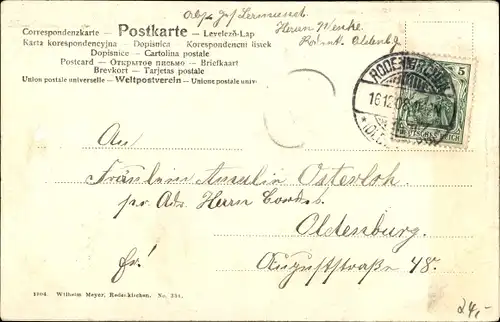 Correspondenzkarte – Postkarte – Levelező-Lap
Karta korespondencyjna – Dopisnica – Korespondenční lístek
Dopisnice – Cartolina postale
Postcard – Открытое письмо – Briefkaart
Brevkort – Tarjetas postale
Union postale universelle – Weltpostverein – Unione postale univ.
Herrn
Oldenbg
RODENKIRCHEN
16.12.
5
DEUTSCHES REICH
An
Fräulein Osterloh
pr. Adr. Herrn
Oldenburg.
fr! Auguststraße 48.
1904. Wilhelm Meyer, Rodenkirchen. No.
24,-